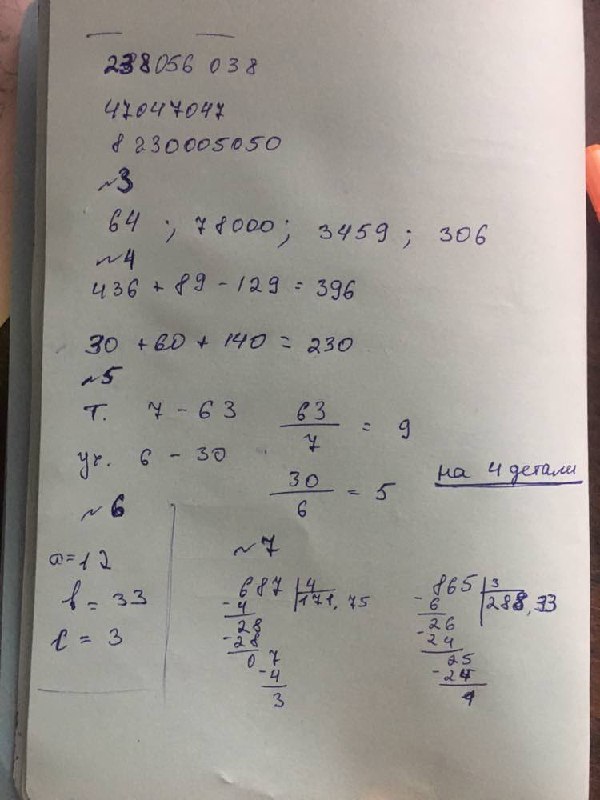 238056 038
47047047
8230005050
~3
64 ; 78000; 3459; 306
~4
436 + 89 - 129 = 396
30 + 60 + 140 = 230
~5
Т. 7 - 63 63/7 = 9
уч. 6 - 30 30/6 = 5
на 4 детали
~6
a = 12
b = 33
c = 3
~7
687 | 4
- 4 171,75
28
- 28
0 7
- 4
3
865 | 3
- 6 288,33
26
- 24
25
- 24